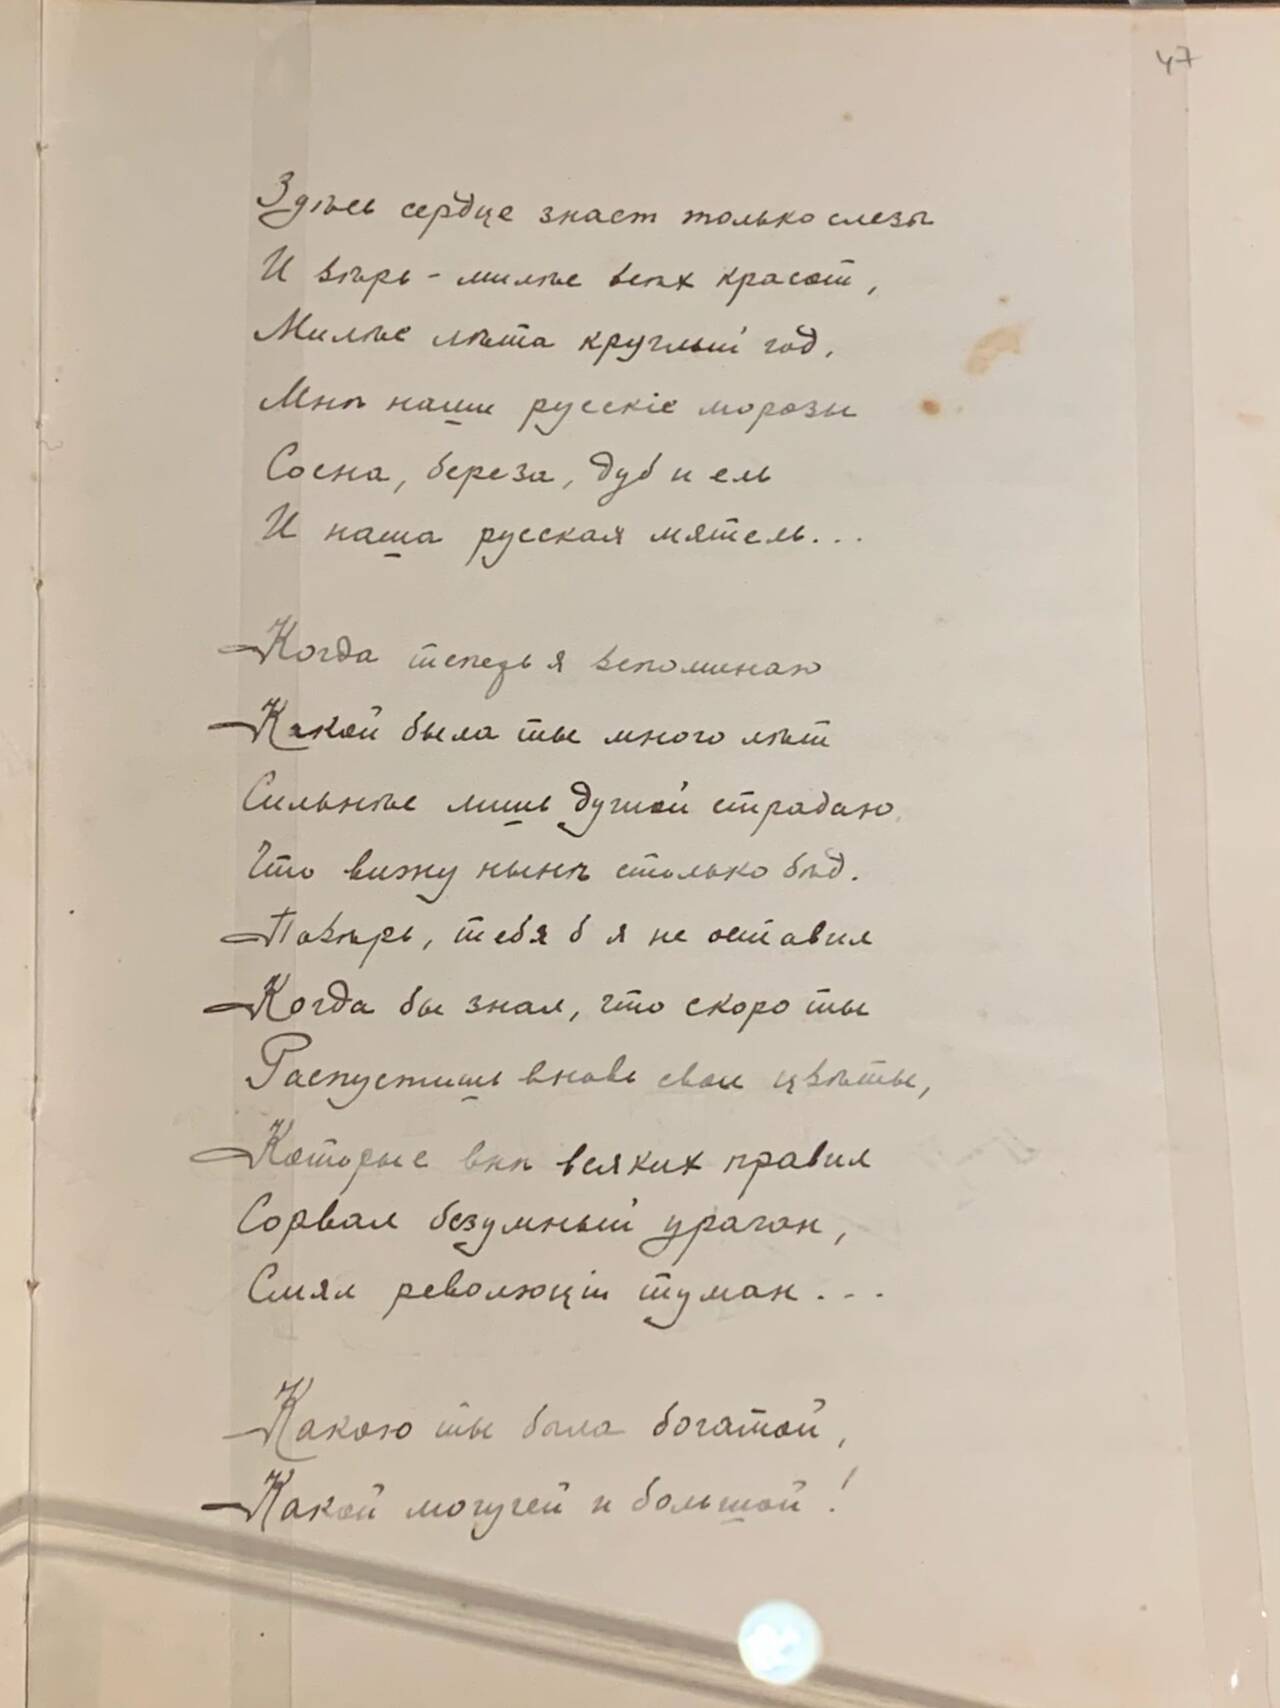 47
Здѣсь сердце знает только слезы
И вѣрь - милѣе всѣх красот,
Милѣе лѣта круглый год,
Мнѣ наши русскіе морозы
Сосна, береза, дуб и ель
И наша русская мятель...
Когда теперь я вспоминаю
Какой была ты много лѣт
Сильнѣе лишь душой страдаю,
Что вижу нынѣ столько бѣд.
Повѣрь, тебя б я не оставил
Когда бы знал, что скоро ты
Распустишь вновь свои цвѣты,
Которые внѣ всяких правил
Сорвал безумный ураган,
Смял революціи туман...
Какою ты была богатой,
Какой могучей и большой!